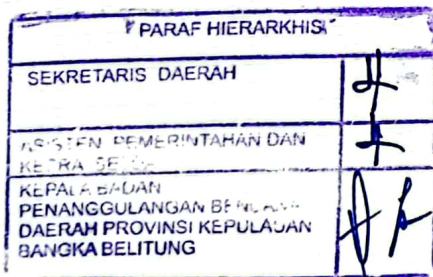 PARAF HIERARKHIS
SEKRETARIS DAERAH
ASISTEN PEMERINTAHAN DAN
KEPALA BADAN
PENANGGULANGAN BENCANA
DAERAH PROVINSI KEPULAUAN
BANGKA BELITUNG